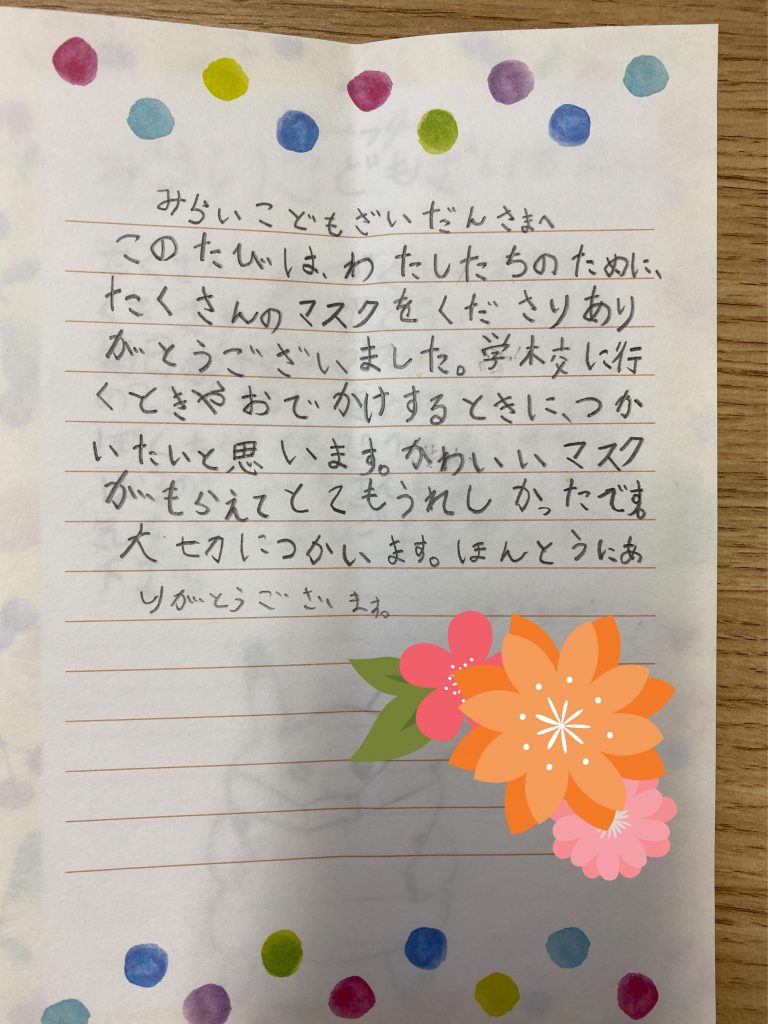 みらいこどもざいだんさまへ
このたびは、わたしたちのために、
たくさんのマスクをくださりあり
がとうございました。学校に行
くときやおでかけするときに、つか
いたいと思います。かわいいマスク
がもらえてとてもうれしかったです。
大切につかいます。ほんとうにあ
りがとうございます。